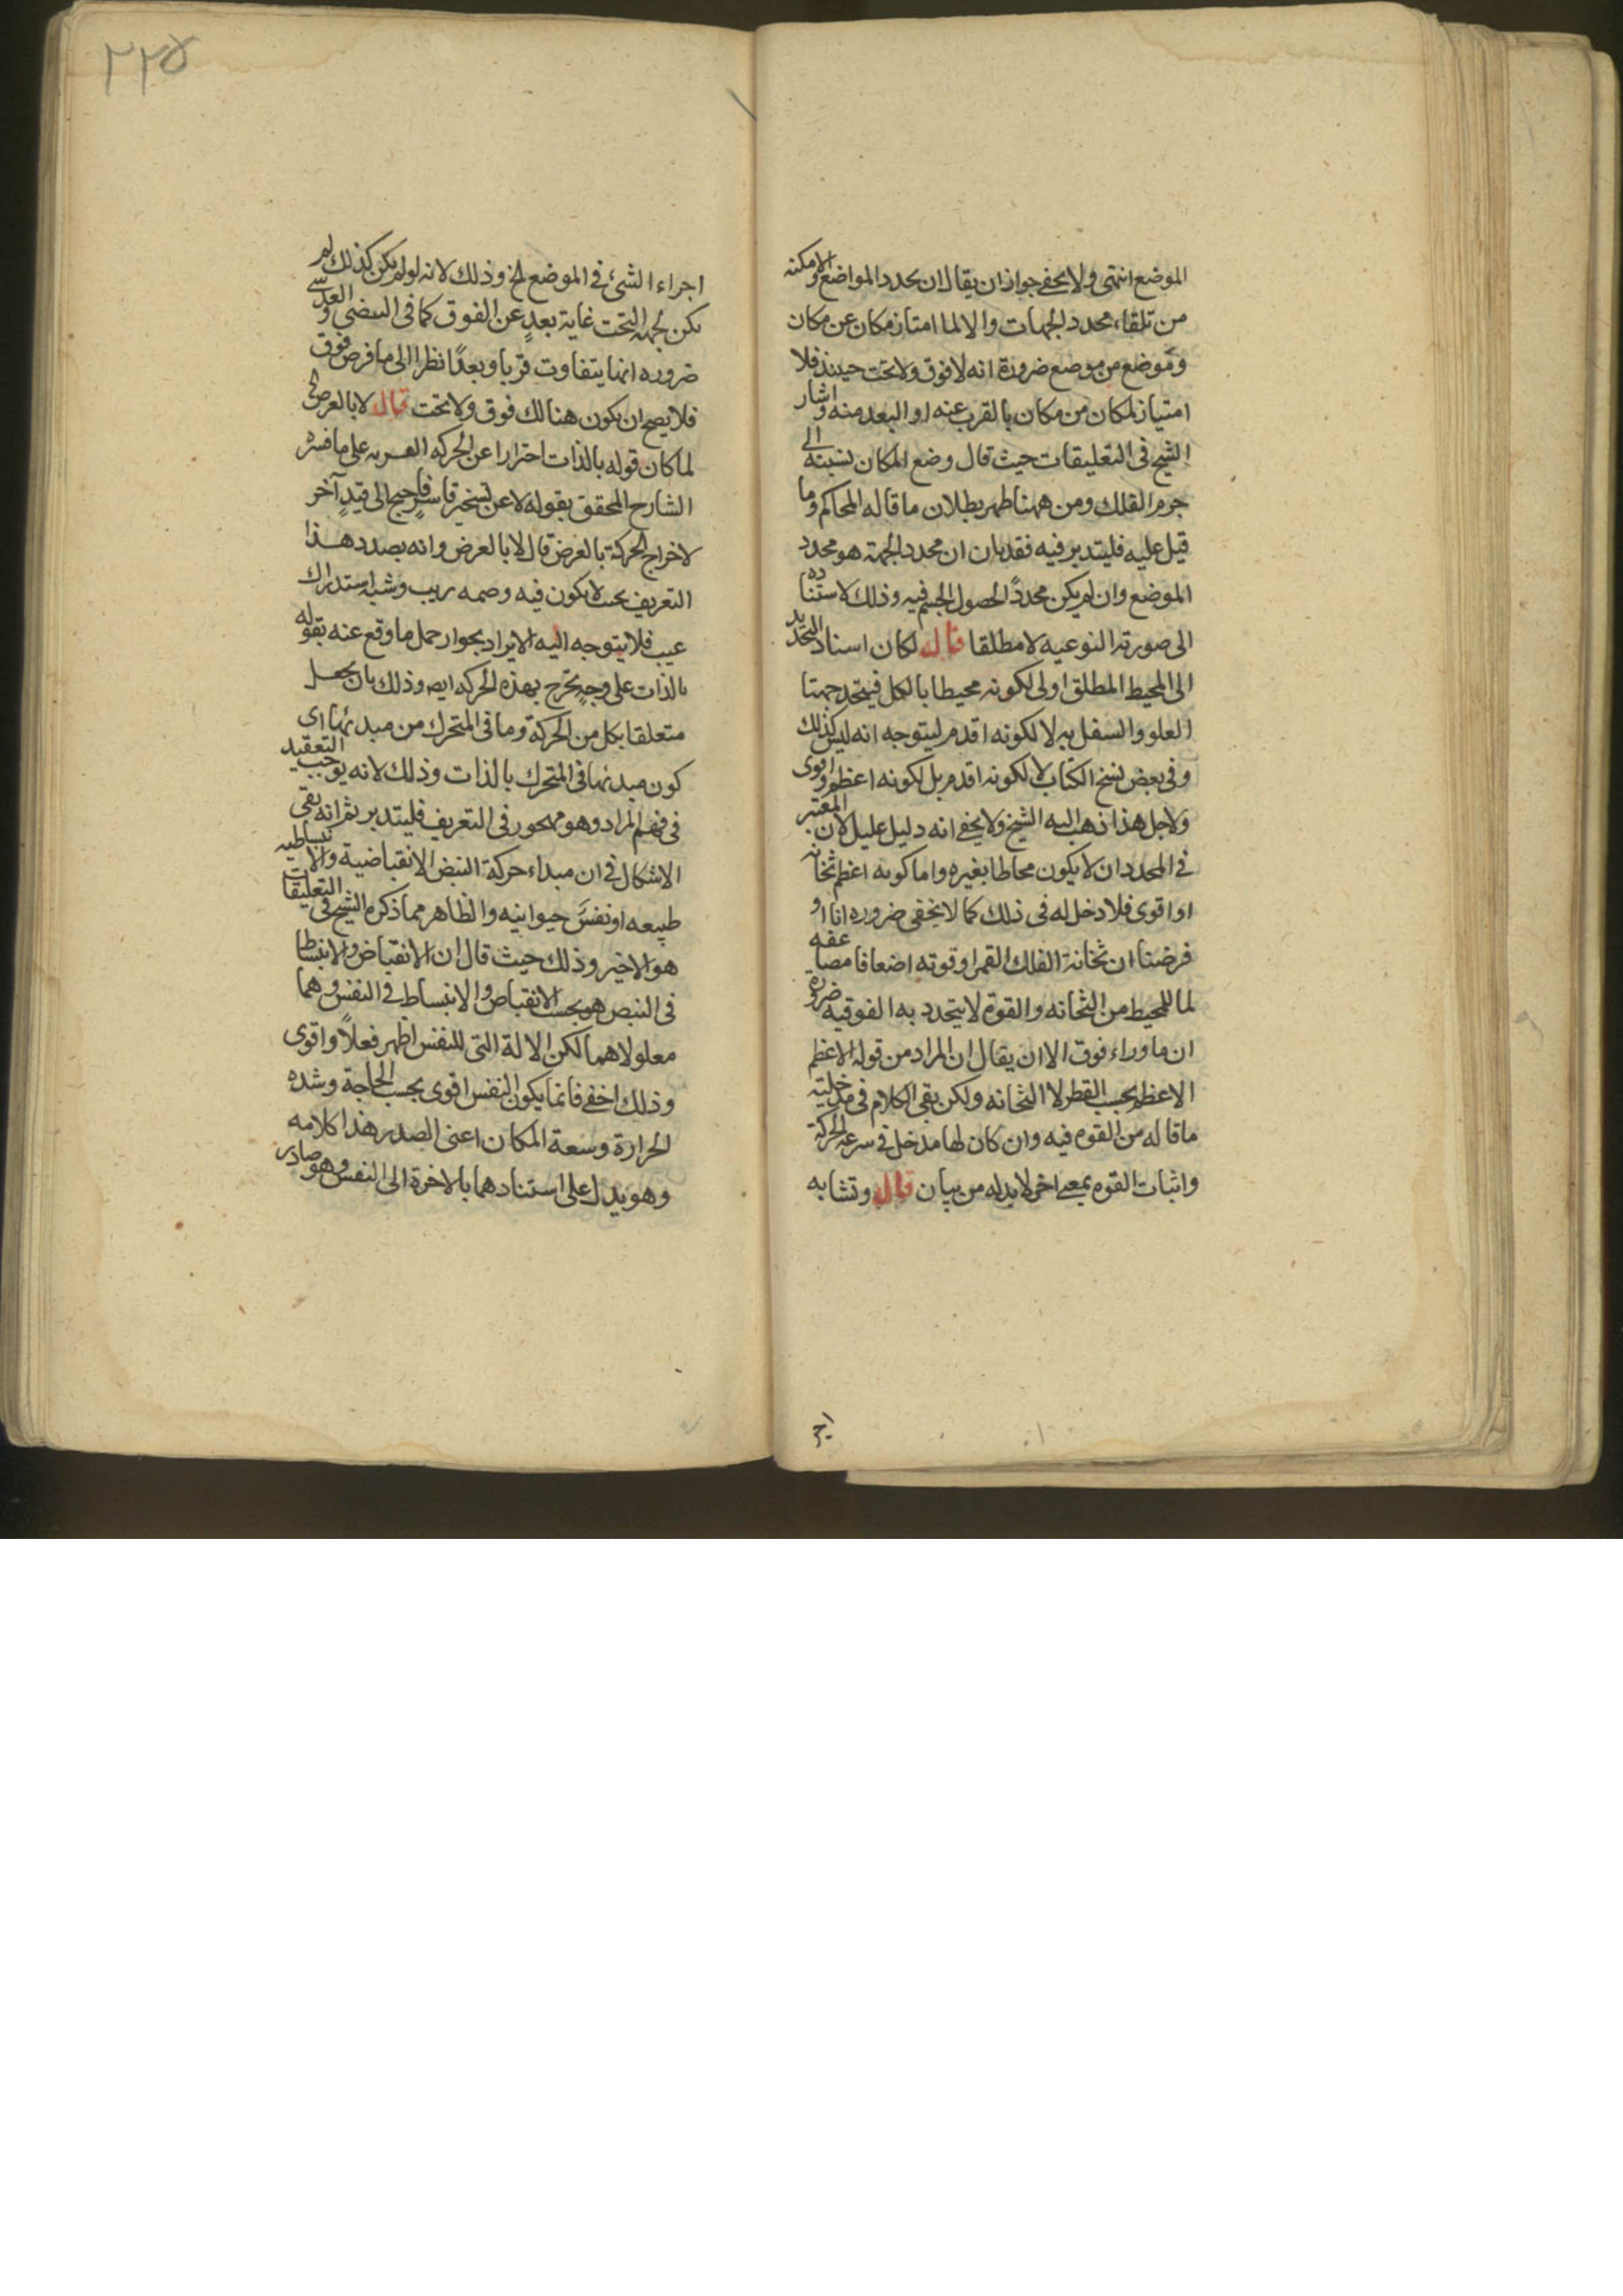 الموضع انتهى ولا يخفى جواز ان يقال ان تحدد المواضع والامكنه
من تلقاء محدد الجهات والا لما امتاز مكان عن مكان
وموضع من موضع ضرورة انه لا فوق ولا تحت حينئذ فلا
امتياز لمكان من مكان بالقرب عنه او البعد منه واشار
الشيخ فى التعليقات حيث قال وضع المكان نسبته الى
جرم الفلك ومن ههنا ظهر بطلان ما قاله المحاكم وما
قيل عليه فليتدبر فيه فقد بان ان محدد الجهة هو محدد
الموضع وان لم يكن محددًا لحصول الجسم فيه وذلك لاستناده
الى صورته النوعيه لا مطلقا قال لكان اسناد التحديد
الى المحيط المطلق اولى لكونه محيطا بالكل فيتحدد جهتا
العلو والسفل به لا لكونه اقدم ليتوجه انه ليس كذلك
وفى بعض نسخ الكتاب لا لكونه اقدم بل لكونه اعظم واقوى
ولاجل هذا ذهب اليه الشيخ ولا يخفى انه دليل عليل لان المعتبر
فى المحدد ان لا يكون محاطا بغيره واما كونه اعظم ثخانه
او اقوى فلا دخل له فى ذلك كما لا يخفى ضروره انا او
فرضنا ان ثخانة الفلك القمر او قوته اضعافا مضاعفه
لما للمحيط من الثخانه والقوة لا يتحدد به الفوقيه ضروره
ان ما وراءه فوق الا ان يقال ان المراد من قوله الاعظم
الاعظم بحسب القطر لا الثخانه ولكن بقى الكلام فى مدخليته
ما قاله من القوه فيه وان كان لها مدخل فى سرعه الحركة
واثبات القوه بمعنى اخر لا بد له من بيان قال وتشابه
اجر
٢٢٥
اجراء الشئ فى الموضع الخ وذلك لانه لو لم يكن كذلك لم
يكن لجهه التحت غاية بعدٍ عن الفوق كما فى البيضى والعدسى
ضروره انها يتفاوت قربا وبعدًا نظرا الى ما فرض فوق
فلا يصح ان يكون هنالك فوق ولا تحت قال لا بالعرض الخ
لما كان قوله بالذات احترازا عن الحركه القسريه على ما فسره
الشارح المحقق بقوله لا عن تسخير قاسر فاحتيج الى قيدٍ آخر
لاخراج الحركة بالعرض قال لا بالعرض وانه بصدد هذا
التعريف بحيث لا يكون فيه وصمه ريب وشبه استدراك
عيب فلا يتوجه اليه الايراد بجواز حمل ما وقع عنه بقوله
بالذات على وجهٍ يخرج بهذه الحركه ايضا وذلك بان يجعل
متعلقا بكل من الحركة وما فى المتحرك من مبدئها اى
كون مبدئها فى المتحرك بالذات وذلك لانه يوجب التعقيد
فى فهم المراد وهو مهجور فى التعريف فليتدبر ثم انه بقى
الاشكال فى ان مبداء حركة النبض الانقباضية والانبساطيه
طبيعه او نفسٌ حيوانيه والظاهر مما ذكره الشيخ فى التعليقات
هو الاخير وذلك حيث قال ان الانقباض والانبساط
فى النبض هو بحسب الانقباض والانبساط فى النفس وهما
معلولاهما لكن الالة التى للنفس اظهر فعلًا واقوى
وذلك اخفى فانما يكون النفس اقوى بحسب الحاجة وشده
الحرارة وسعة المكان اعنى الصدر هذا كلامه
وهو يدل على استنادهما بالاخرة الى النفس وهو صادر